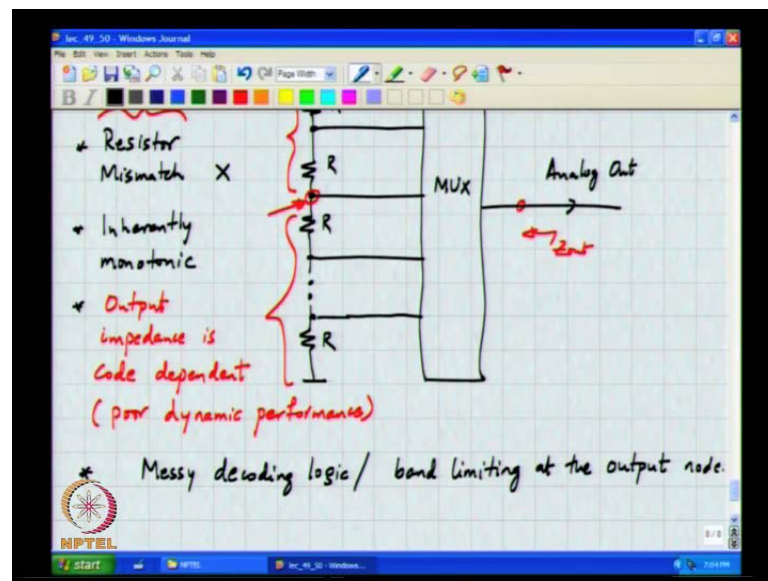 lec_49_50 - Windows Journal
File Edit View Insert Actions Tools Help
Page Width
B I
* Resistor
Mismatch X
* Inherantly
monotonic
* Output
impedance is
code dependent
(poor dynamic performance)
R
R
R
MUX
Analog Out
Zout
* Messy decoding logic / band limiting at the output node.
NPTEL
8/8
start
NPTEL
lec_49_50 - Windows...
7:04 PM